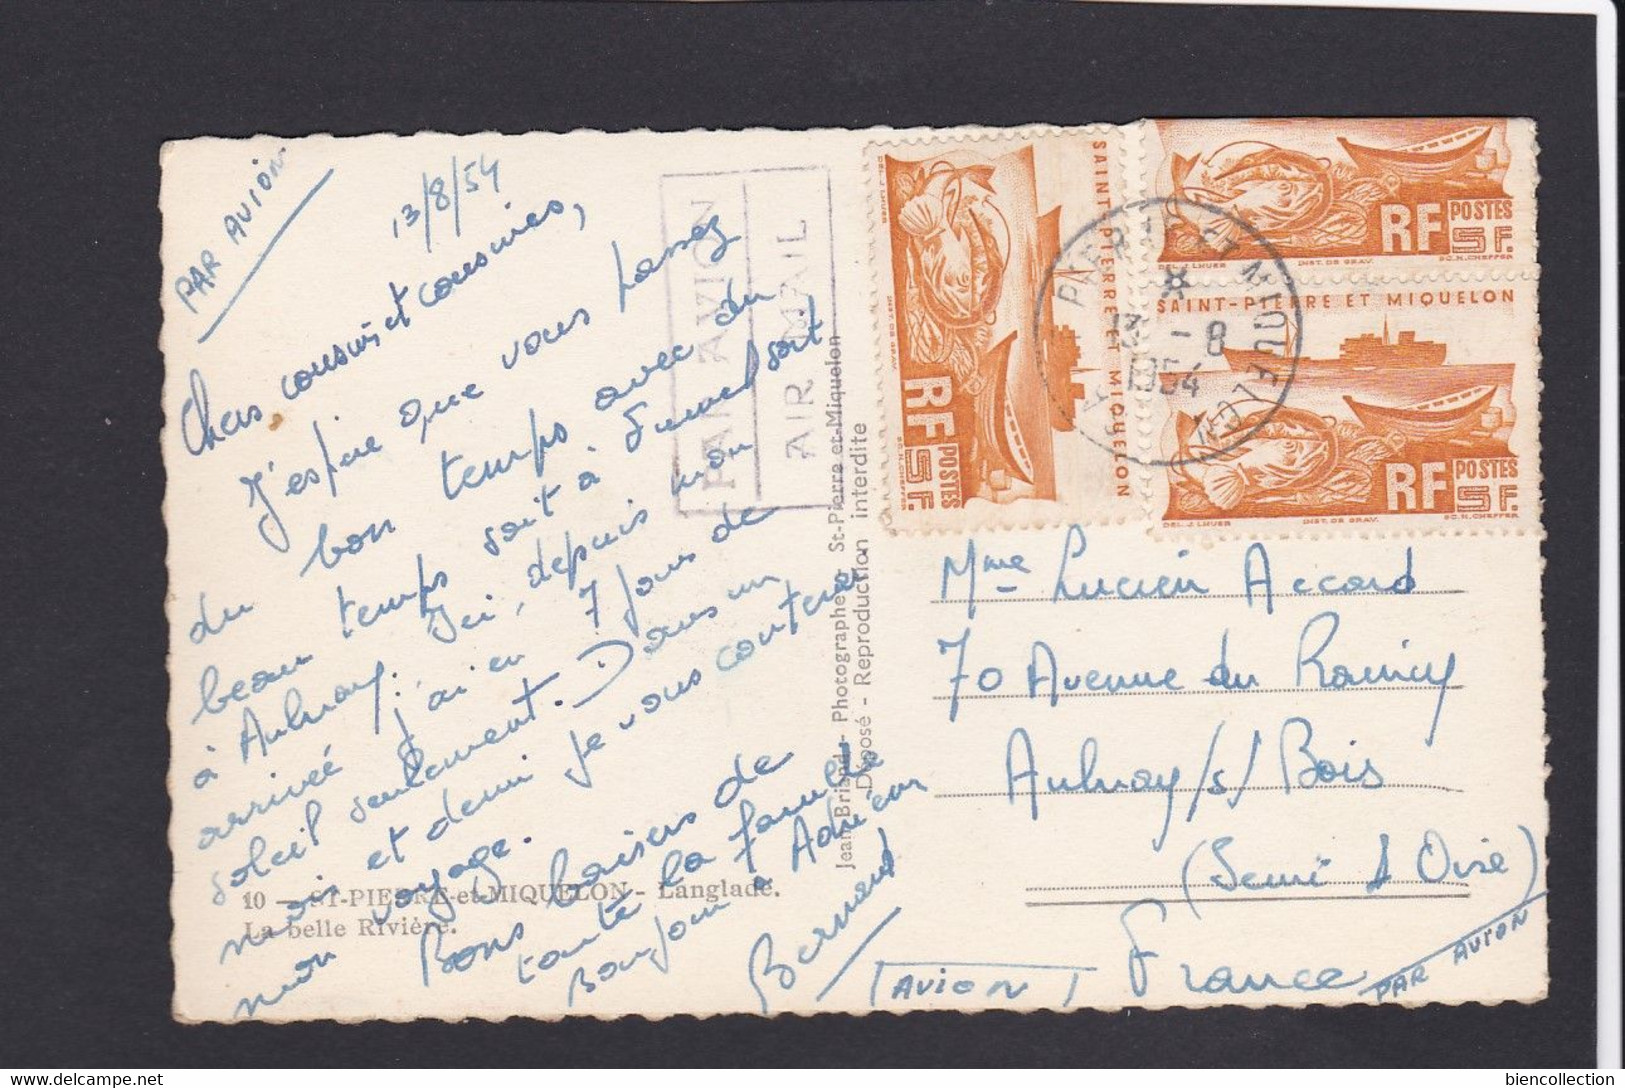 PAR AVION
13/8/54
Chers cousins et cousines,
J'espère que vous passez
du bon temps avec du
beau temps soit à Sunnel soit
à Aulnay. Ici, depuis mon
arrivée j'ai eu 7 jours de
soleil seulement. Dans un
mois et demi je vous conterai
mon voyage.
Bons baisers de
toute la famille
Bonjour à Adrien
Bernard
10 — ST-PIERRE-et-MIQUELON - Langlade.
La belle Rivière.
PAR AVION
AIR MAIL
Jean Briand - Photographe St-Pierre-et-Miquelon
Déposé - Reproduction interdite
SAINT-PIERRE ET MIQUELON
RF POSTES 5F.
DEL. J. LHUER INST. DE GRAV. SC. N. CHEFFER
RF POSTES 5F.
DEL. J. LHUER INST. DE GRAV. SC. N. CHEFFER
SAINT-PIERRE ET MIQUELON
RF POSTES 5F.
DEL. J. LHUER INST. DE GRAV. SC. N. CHEFFER
PIERRE ET MIQUELON
13 -8
1954
Mme Lucien Accard
70 Avenue du Raincy
Aulnay/s/Bois
(Seine & Oise)
France
AVION
PAR AVION
delcampe.net
biencollection